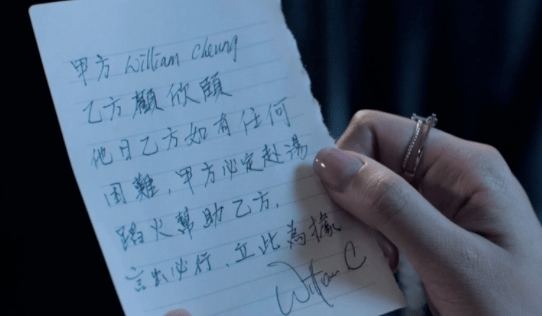 甲方 William Cheung
乙方顧欣頤
他日乙方如有任何
困難，甲方必定赴湯
蹈火幫助乙方，
言出必行、立此為據
William C